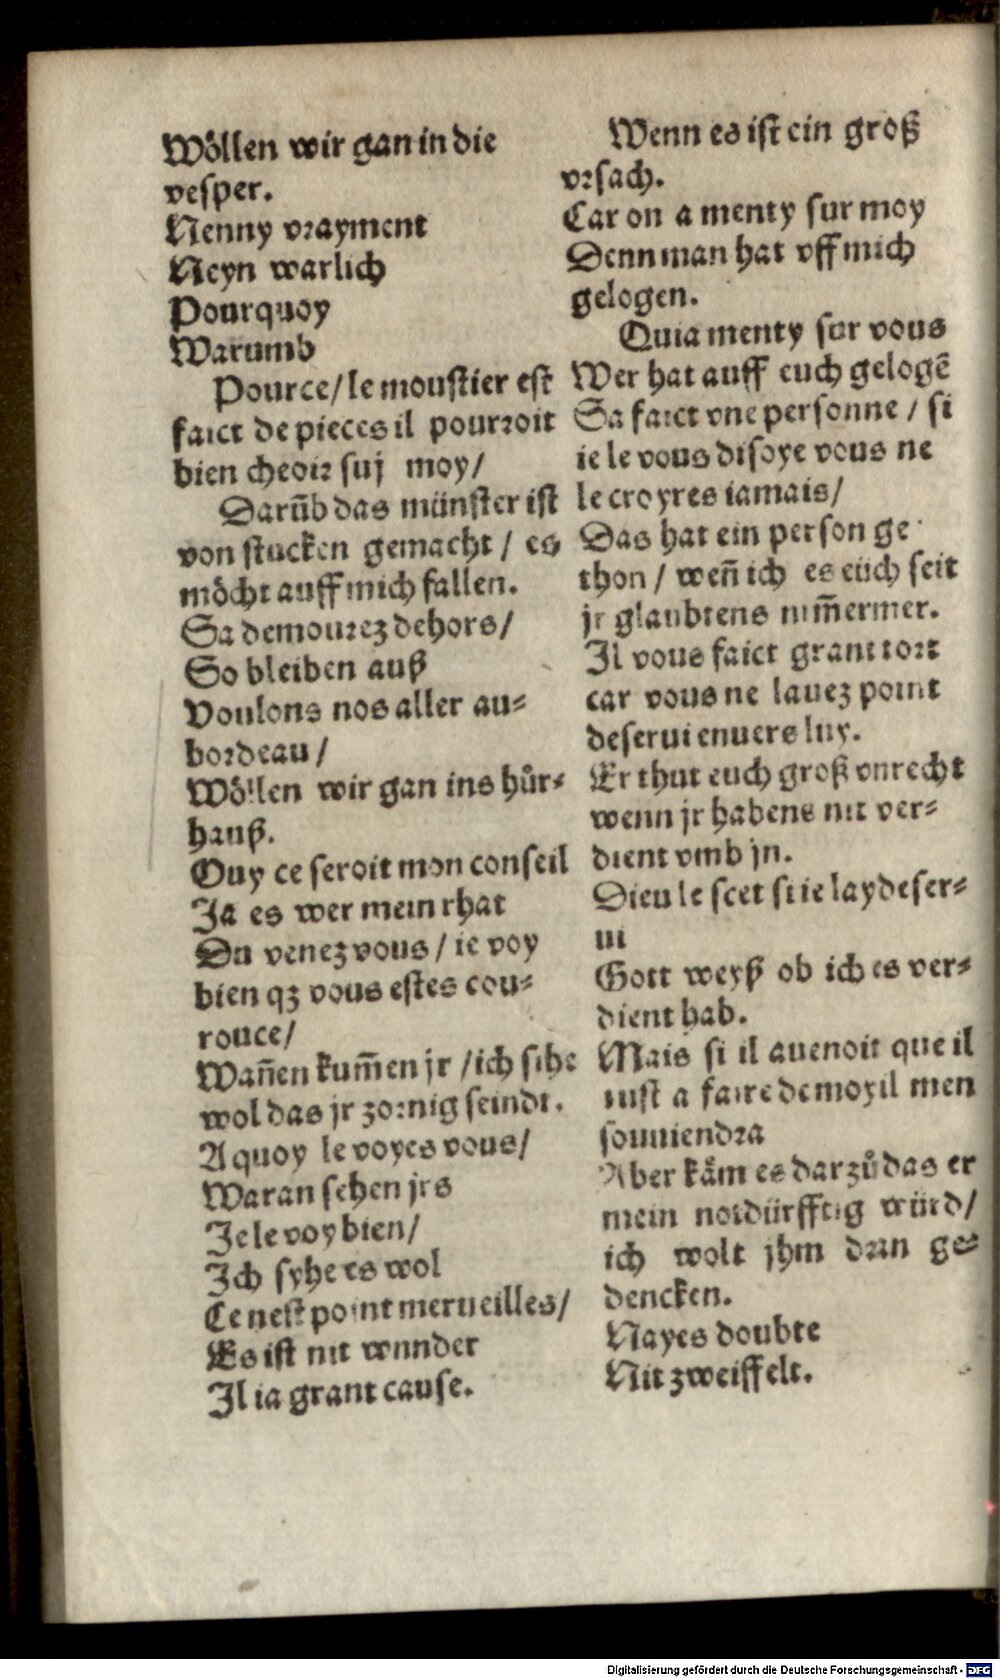 Wöllen wir gan in die
vesper.
Nenny vrayment
Neyn warlich
Pourquoy
Warumb
Pource/ le moustier est
faict de pieces il pourroit
bien cheoir suj moy/
Darūb das münster ist
von stucken gemacht / es
möcht auff mich fallen.
Sa demourez dehors/
So bleiben auß
Voulons nos aller au-
bordeau /
Wöllen wir gan ins hůr-
hauß.
Ouy ce seroit mon conseil
Ja es wer mein rhat
Du venez vous / ie voy
bien qz vous estes cou-
rouce/
Wañen kum̃en jr /ich sihe
wol das jr zornig seindt.
A quoy le voyes vous/
Waran sehen jrs
Je le voy bien/
Ich syhe es wol
Ce nest point merueilles/
Es ist nit wunder
Il ia grant cause.
Wenn es ist ein groß
vrsach.
Car on a menty sur moy
Denn man hat vff mich
gelogen.
Quia menty sur vous
Wer hat auff euch gelogē
Sa faict vne personne / si
ie le vous disoye vous ne
le croyres iamais/
Das hat ein person ge
thon / weñ ich es eüch seit
jr glaubtens nim̃ermer.
Il vous faict grant tort
car vous ne lauez point
deserui enuers luy.
Er thut euch groß vnrecht
wenn jr habens nit ver-
dient vmb jn.
Dieu le scet si ie lay deser-
ui
Gott weyß ob ich es ver-
dient hab.
Mais si il auenoit que il
iust a faire de moy il men
souuiendra
Aber kåm es darzů das er
mein notdürfftig würd/
ich wolt jhm dran ge-
dencken.
Nayes doubte
Nit zweiffelt.
Digitalisierung gefördert durch die Deutsche Forschungsgemeinschaft - DFG